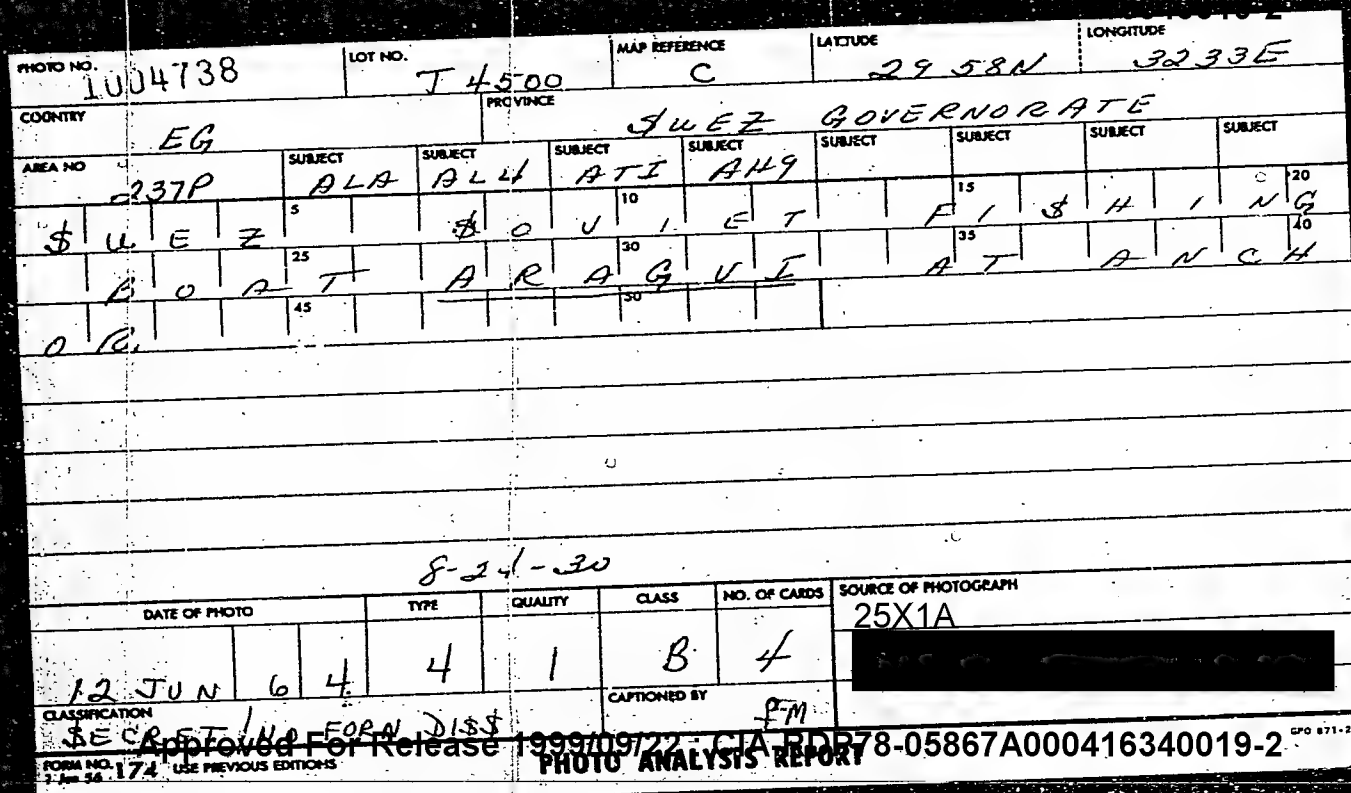 PHOTO NO. 1004738 LOT NO. J 4500 MAP REFERENCE C LATITUDE 29 58N LONGITUDE 3233E
COUNTRY EG PROVINCE $UEZ GOVERNORATE
AREA NO 237P SUBJECT ALA SUBJECT AL4 SUBJECT ATI SUBJECT AH9 SUBJECT SUBJECT SUBJECT SUBJECT
5 10 15 20
$UEZ $OVIET FI$HING
25 30 35 40
BOAT ARAGVI AT ANCH
45 50
OR.
8-24-30
DATE OF PHOTO TYPE QUALITY CLASS NO. OF CARDS SOURCE OF PHOTOGRAPH
25X1A
12 JUN 64 4 1 B 4
CLASSIFICATION CAPTIONED BY PM
$ECRET/NO FORN DI$$
Approved For Release 1999/09/22 : CIA-RDP78-05867A000416340019-2
FORM NO. 174 USE PREVIOUS EDITIONS PHOTO ANALYSIS REPORT GPO 871-2
1 Jun 56